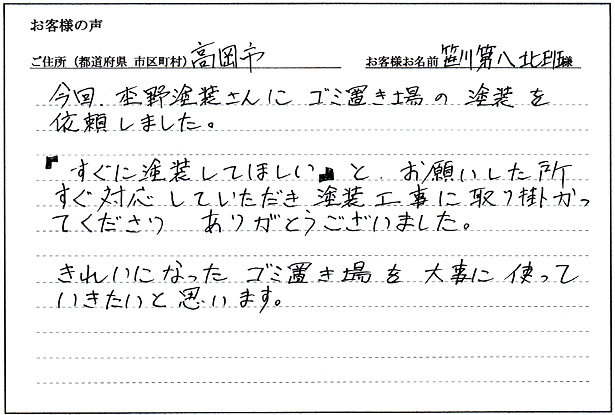 お客様の声
ご住所（都道府県 市区町村）高岡市 お客様お名前 笹川第八北班様
今回、杢野塗装さんに ゴミ置き場の 塗装を
依頼しました。
『すぐに塗装してほしい』と、お願いした所
すぐ対応していただき 塗装工事に取り掛かっ
てくださり ありがとうございました。
きれいになった ゴミ置き場を 大事に使って
いきたいと思います。